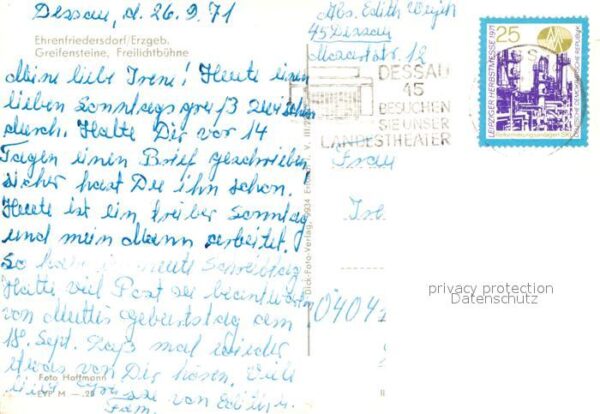 Dessau, d. 26.9.71
Ehrenfriedersdorf/Erzgeb.
Greifensteine, Freilichtbühne
Meine liebe Irene! Heute einen
lieben Sonntagsgruß zwischen
durch. Hatte Dir vor 14
Tagen einen Brief geschrieben
sicher hast Du ihn schon.
Heute ist ein trüber Sonntag
und mein Mann arbeitet.
So habe ich heute Schreibtag
Hatte viel Post zu beantworten
von Muttis Geburtstag am
18. Sept. Lass mal wieder
etwas von Dir hören. Viele
liebe Grüsse von Edith u.
Fam.
Foto Hoffmann
Dick-Foto-Verlag, 9934
Abs. Edith
45 Dessau
Mozartstr. 12
DESSAU
45
BESUCHEN
SIE UNSER
LANDESTHEATER
LEIPZIGER HERBSTMESSE 1971
25
DEUTSCHE DEMOKRATISCHE REPUBLIK
Frau
privacy protection
Datenschutz